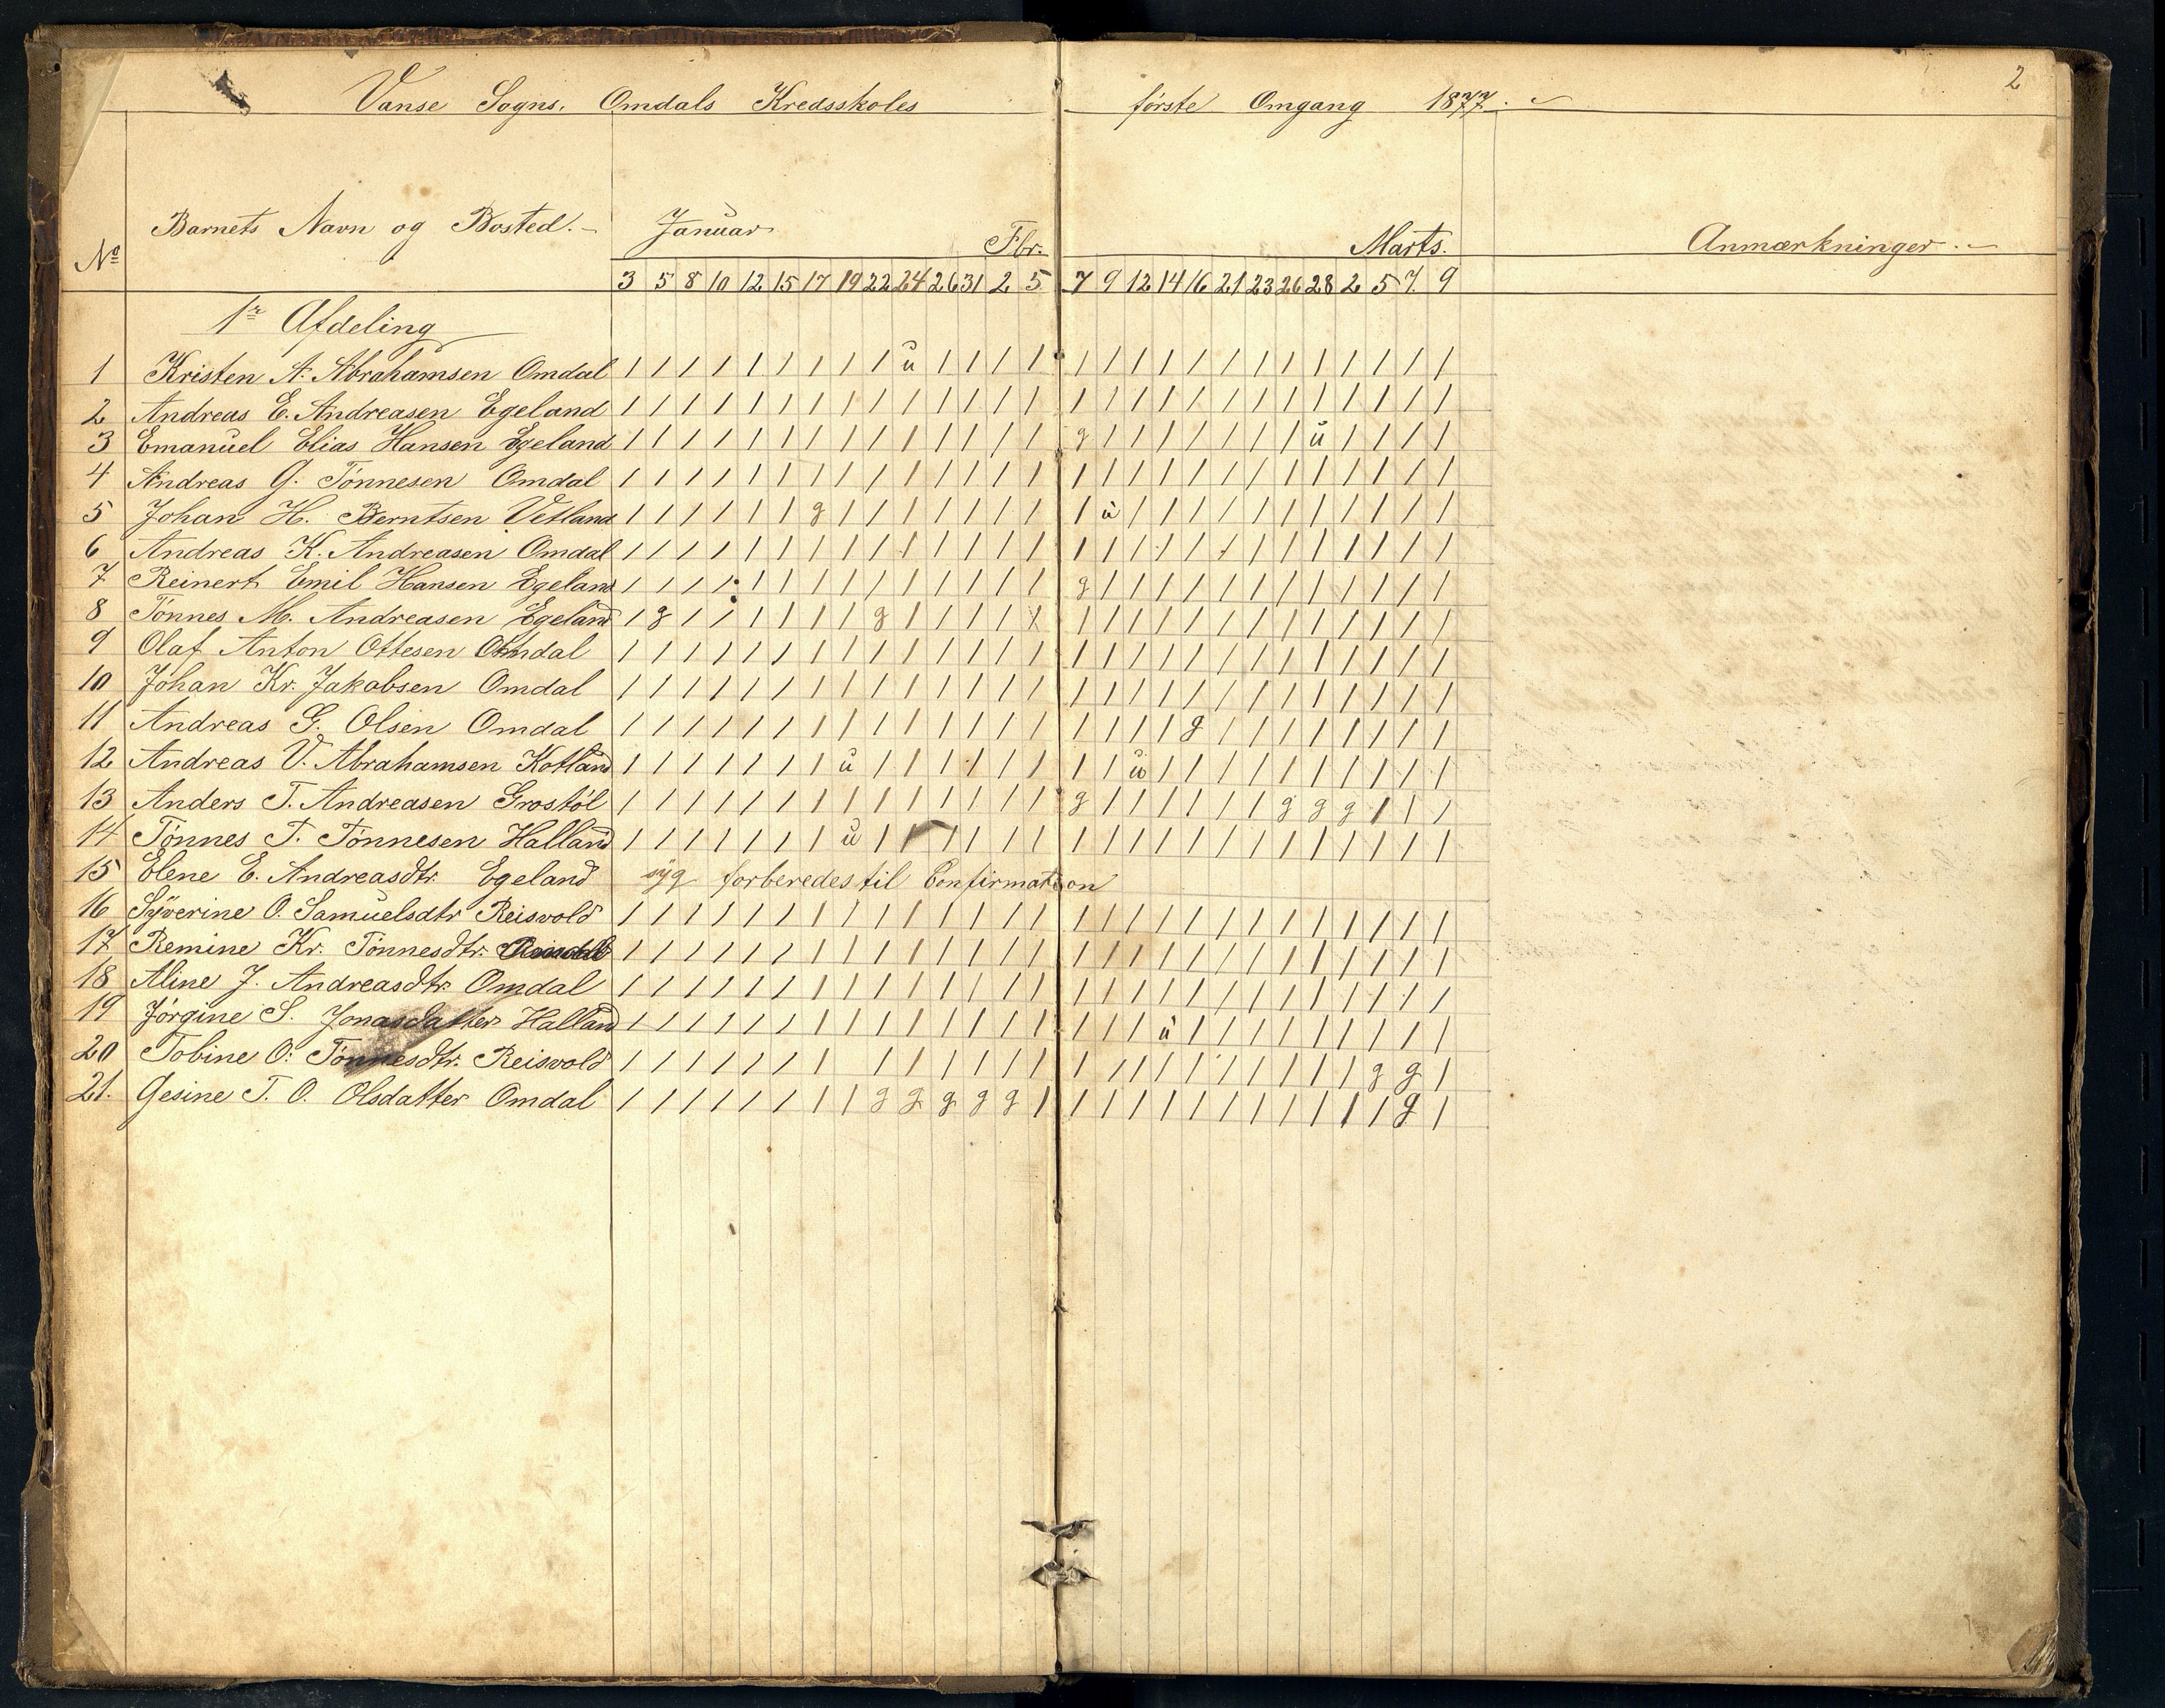 2
Vanse Sogns. Omdals Kredsskoles første Omgang 1877.
No Barnets Navn og Bosted. Januar Fbr. Marts. Anmærkninger.
3 5 8 10 12 15 17 19 22 24 26 31 2 5 7 9 12 14 16 21 23 26 28 2 5 7. 9
1ª Afdeling
1 Kristen A. Abrahamsen Omdal / / / / / / / / / ü / / / / / / / / / / / / / / / / /
2 Andreas E. Andreasen Egeland / / / / / / / / / / / / / / / / / / / / / / / / / / /
3 Emanuel Elias Hansen Egeland / / / / / / / / / / / / / / g / / / / / / / ü / / / /
4 Andreas G. Tönnesen Omdal / / / / / / / / / / / / / / / / / / / / / / / / / / /
5 Johan H. Berntsen Vetland / / / / / / g / / / / / / / / ü / / / / / / / / / / /
6 Andreas K. Andreasen Omdal / / / / / / / / / / / / / / / / / / / / / / / / / / /
7 Reinert Emil Hansen Egeland / / / / / / / / / / / / / / g / / / / / / / / / / / /
8 Tönnes M. Andreasen Egeland / g / / / / / / g / / / / / / / / / / / / / / / / / /
9 Olaf Anton Ottesen Omdal / / / / / / / / / / / / / / / / / / / / / / / / / / /
10 Johan Kr. Jakobsen Omdal / / / / / / / / / / / / / / / / / / / / / / / / / / /
11 Andreas G. Olsen Omdal / / / / / / / / / / / / / / / / / / g / / / / / / / /
12 Andreas V. Abrahamsen Kotland / / / / / / / ü / / / / / / / / ü / / / / / / / / / /
13 Anders T. Andreasen Grostöl / / / / / / / / / / / / / / g / / / / / / g g g / / /
14 Tönnes T. Tönnesen Halland / / / / / / / ü / / / / / / / / / / / / / / / / / / /
15 Elene E. Andreasdtr. Egeland syg forberedes til Confirmation
16 Syverine O. Samuelsdtr Reisvold / / / / / / / / / / / / / / / / / / / / / / / / / / /
17 Remine Kr. Tönnesdtr. / / / / / / / / / / / / / / / / / / / / / / / / / / /
18 Aline J. Andreasdtr. Omdal / / / / / / / / / / / / / / / / / / / / / / / / / / /
19 Jörgine S. Jonasdatter Halland / / / / / / / / / / / / / / / / / ü / / / / / / / / /
20 Tobine O. Tönnesdtr. Reisvold / / / / / / / / / / / / / / / / / / / / / / / g g /
21. Gesine T. O. Olsdatter Omdal / / / / / / / / g g g g g / / / / / / / / / / / / g /